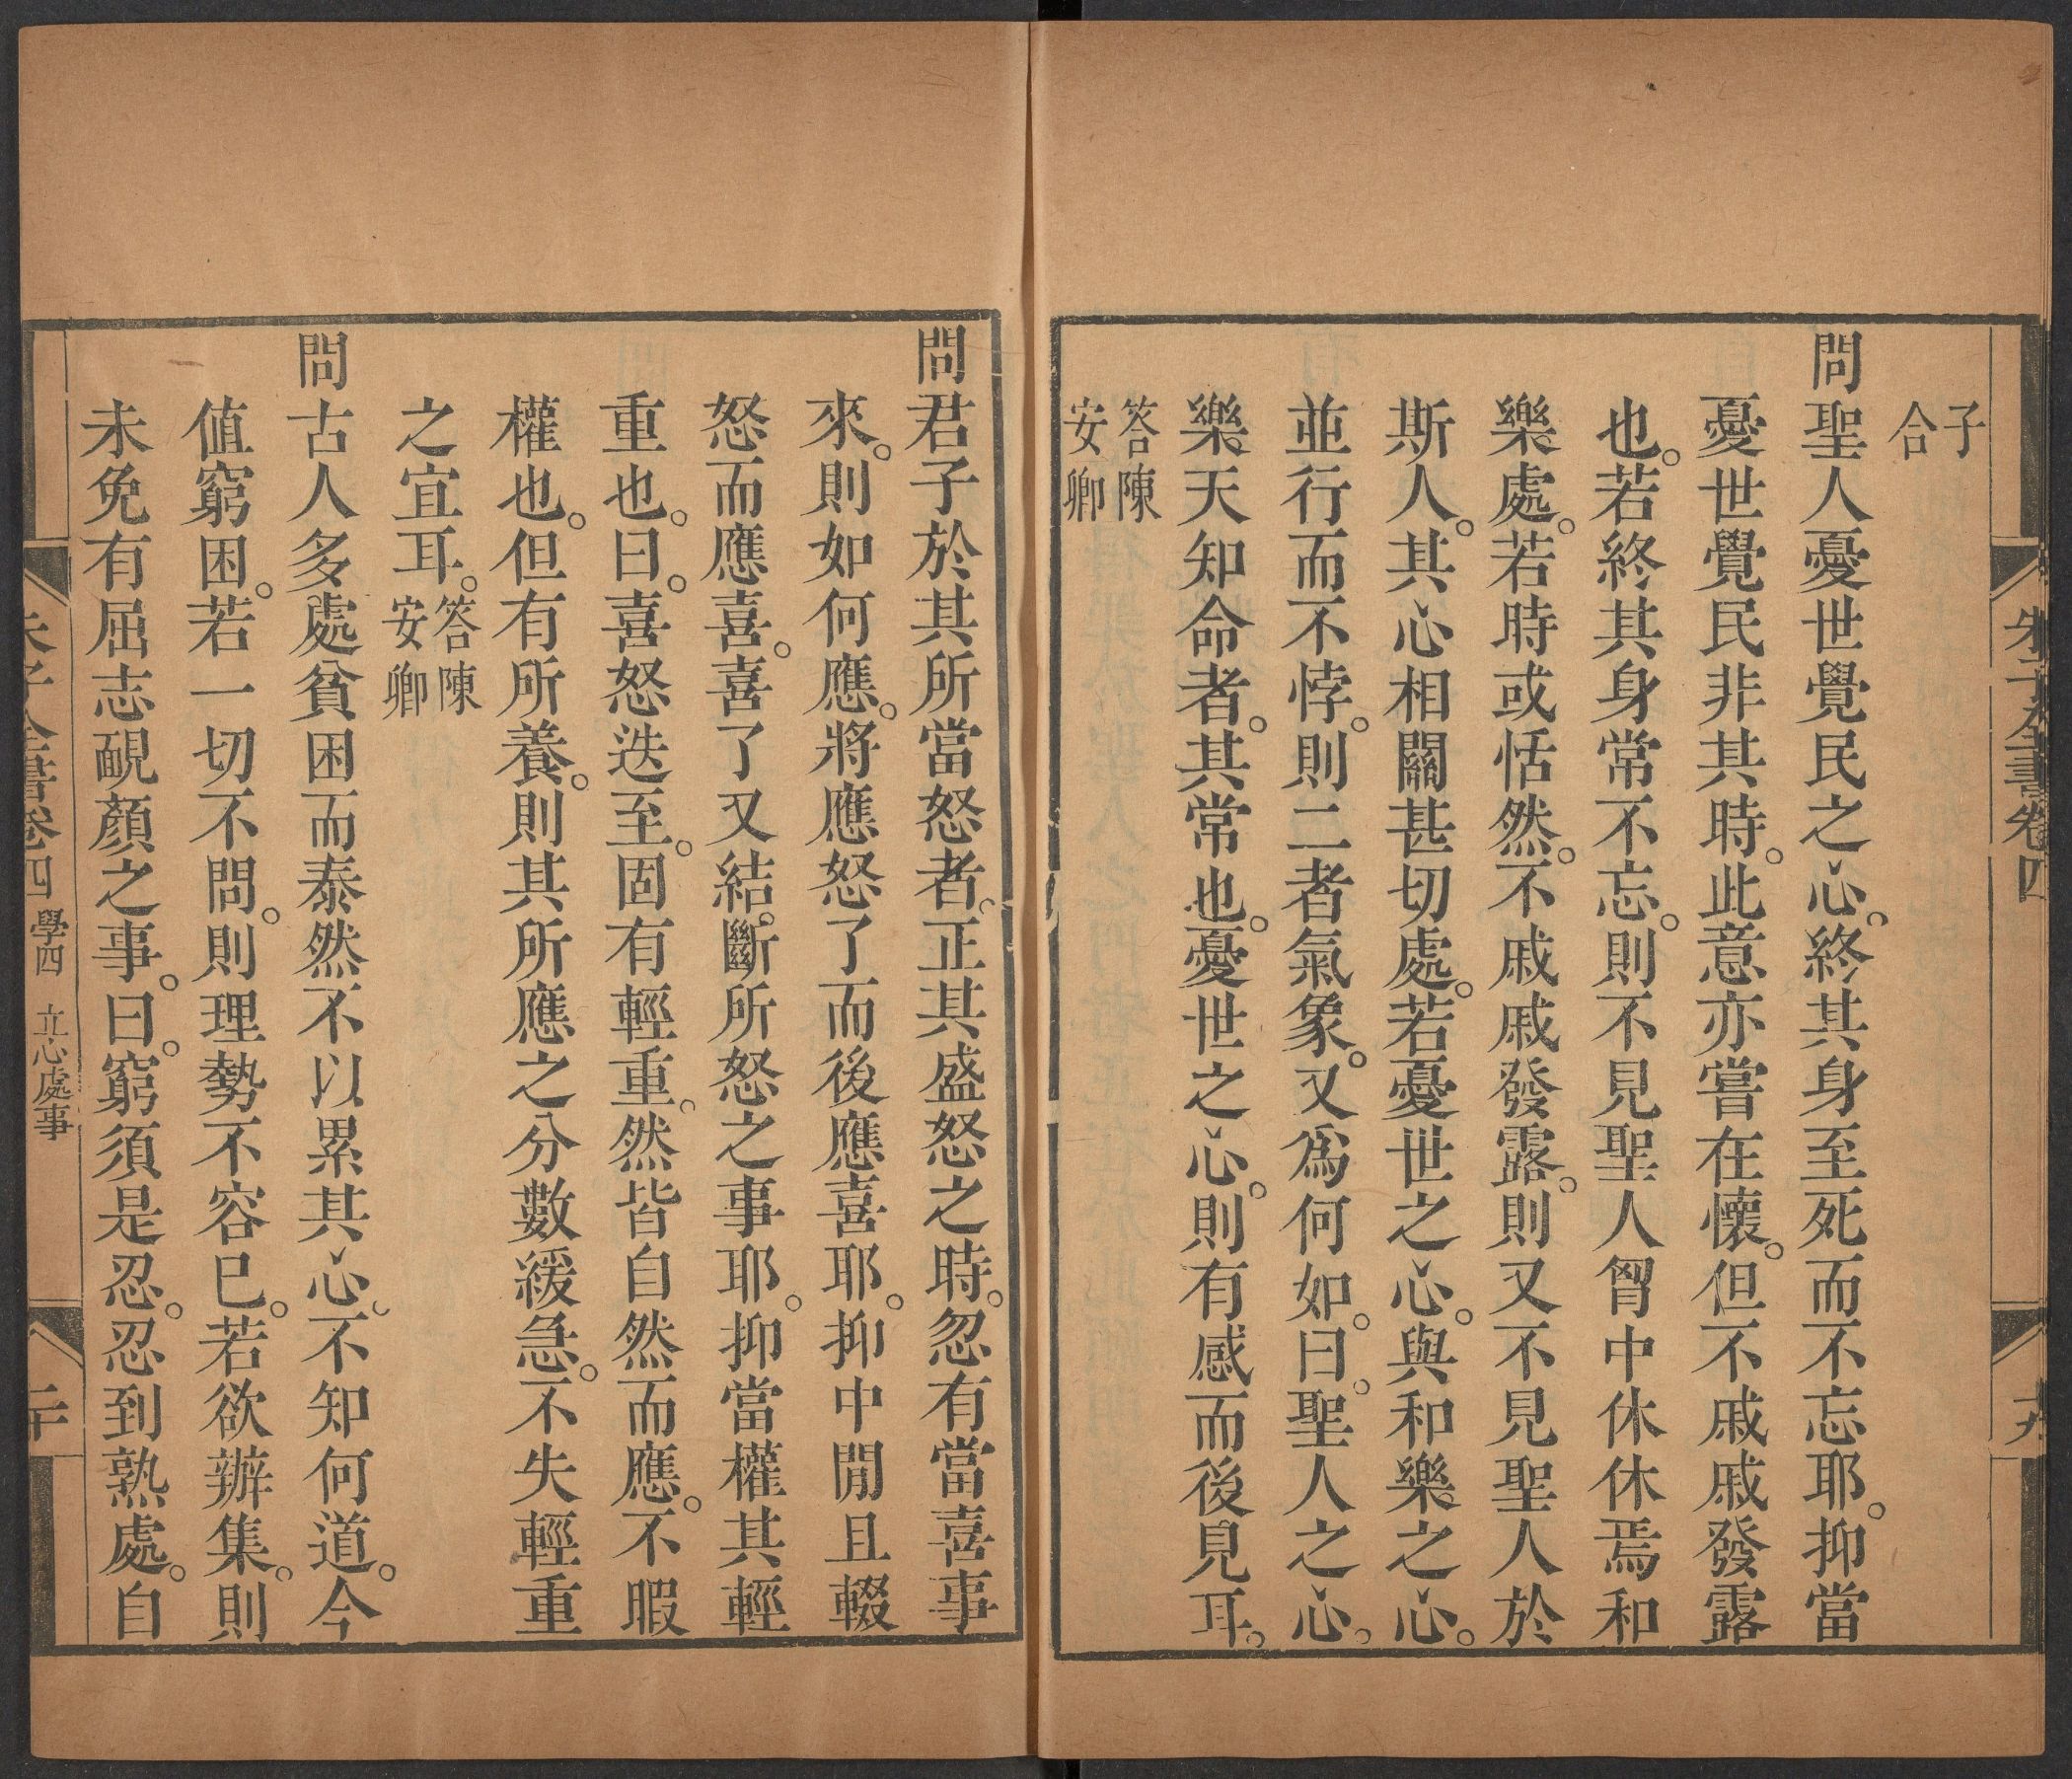 朱子全書卷四
十九
子
合
問聖人憂世覺民之心。終其身至死而不忘耶。抑當
憂世覺民非其時。此意亦嘗在懷。但不戚戚發露
也。若終其身常不忘。則不見聖人胷中休休焉和
樂處。若時或恬然。不戚戚發露。則又不見聖人於
斯人。其心相關甚切處。若憂世之心。與和樂之心。
並行而不悖。則二者氣象。又爲何如。曰。聖人之心。
樂天知命者。其常也。憂世之心。則有感而後見耳。
答陳
安卿
問君子於其所當怒者。正其盛怒之時。忽有當喜事
來。則如何應。將應怒了而後應喜耶。抑中閒且輟
怒而應喜。喜了又結斷所怒之事耶。抑當權其輕
重也。曰。喜怒迭至。固有輕重。然皆自然而應。不暇
權也。但有所養。則其所應之分數緩急。不失輕重
之宜耳。答陳
安卿
問古人多處貧困而泰然不以累其心。不知何道。今
值窮困。若一切不問。則理勢不容已。若欲辦集。則
未免有屈志靦顏之事。曰。窮須是忍。忍到熟處。自
朱子全書卷四 學四 立心處事
二十